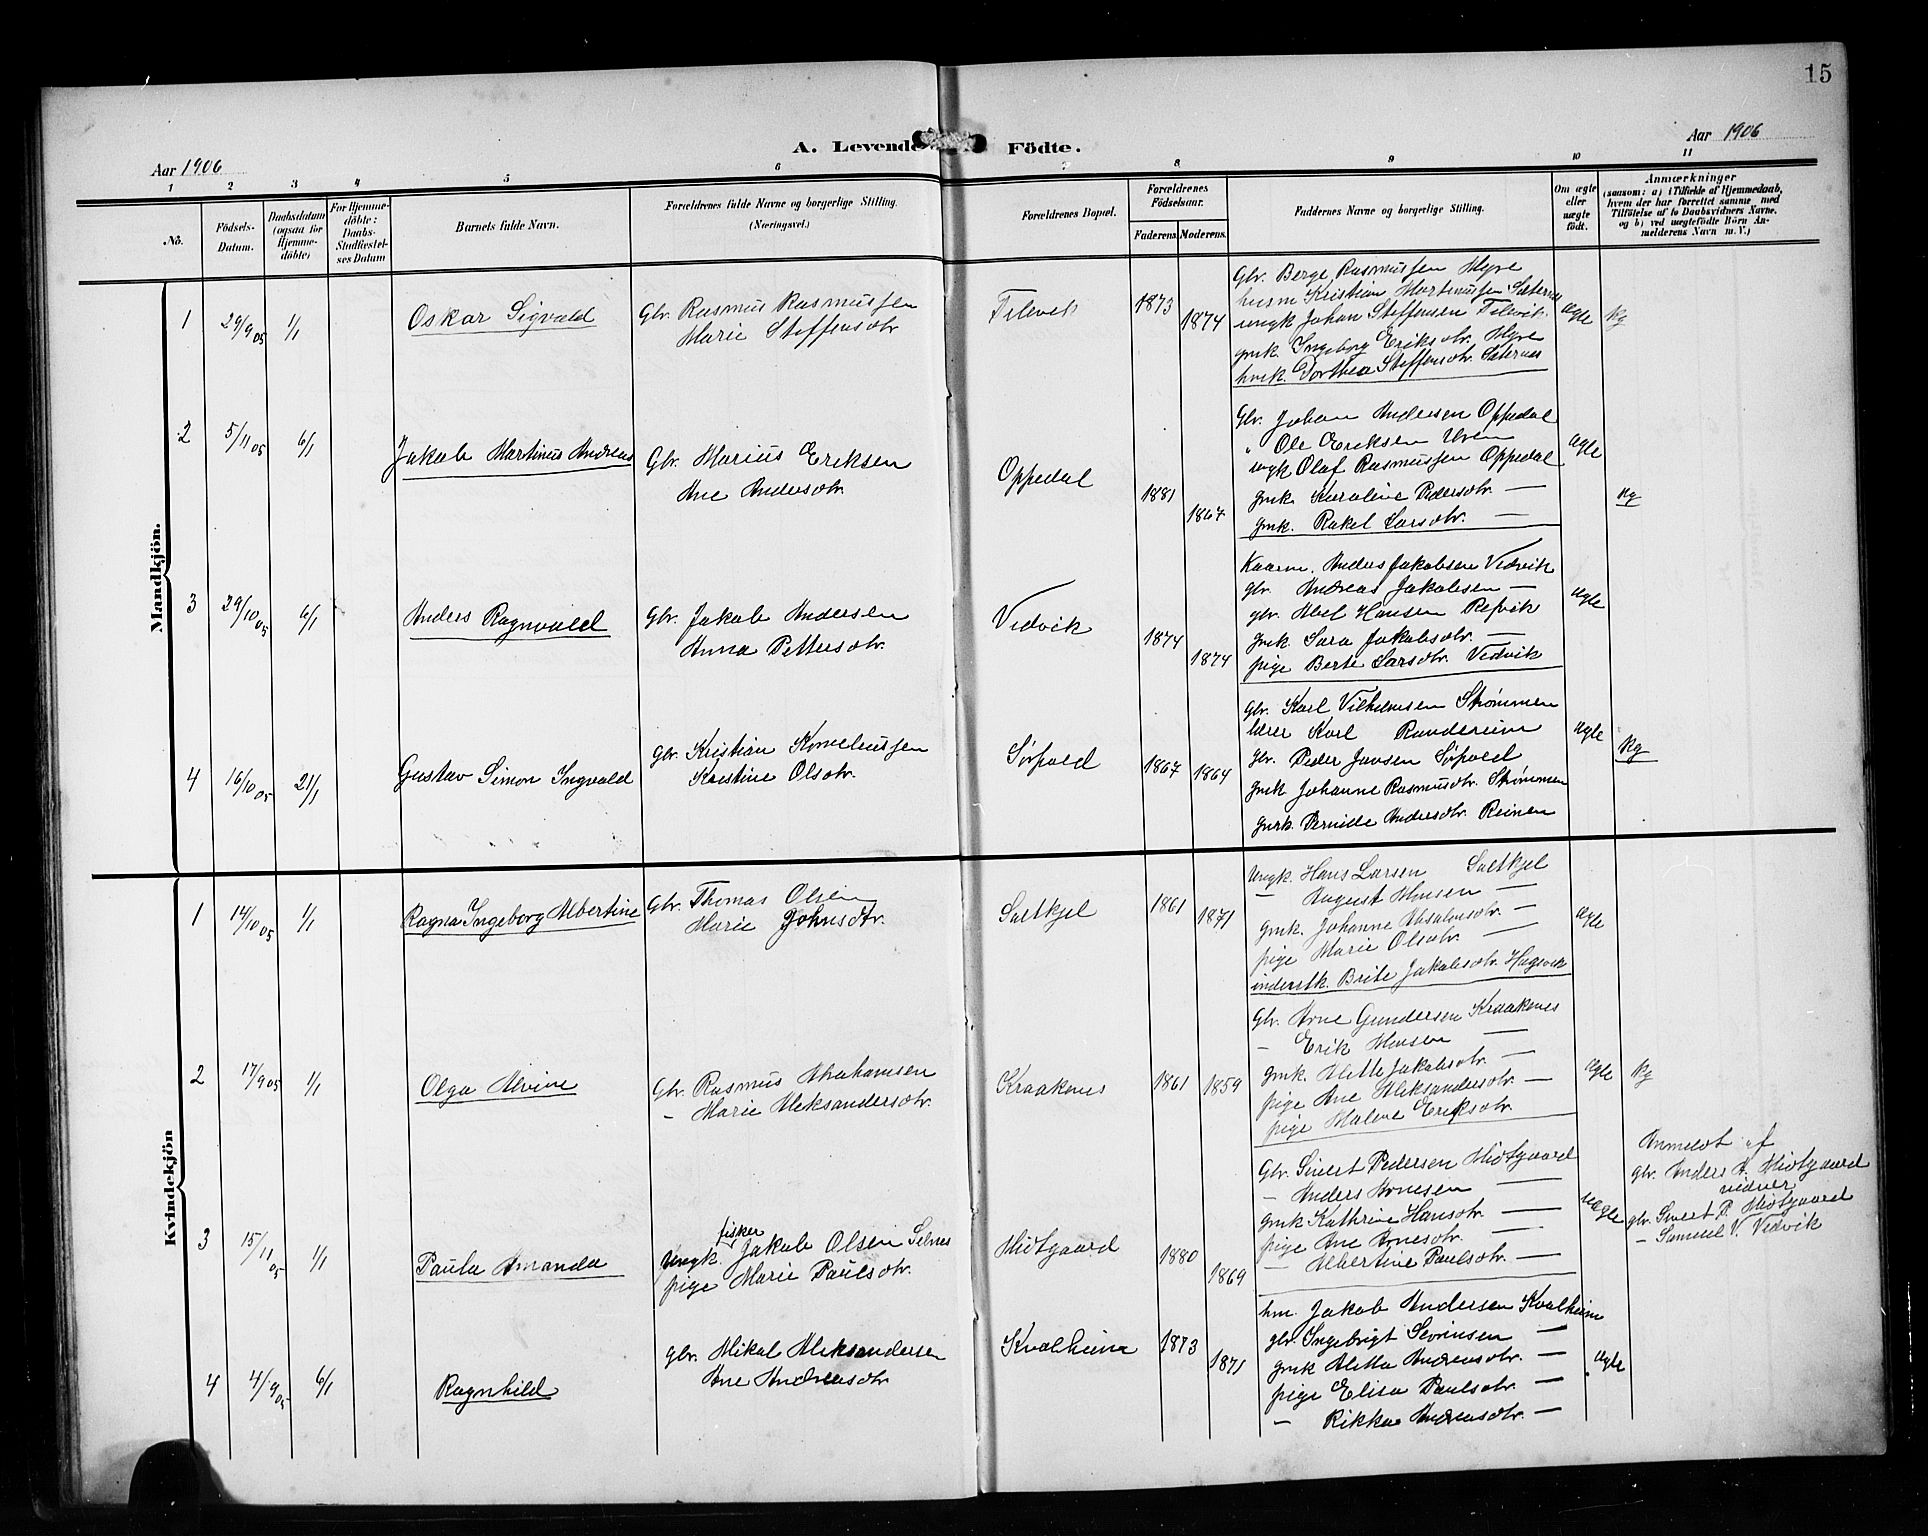 15
Aar 1906
A. Levende Födte.
Aar 1906
1 2 3 4 5 6 7 8 9 10 11
No.
Födsels-
Datum.
Daabsdatum
(ogsaa for
Hjemme-
döbte)
For Hjemme-
döbte:
Daabs-
Stadfæstel-
ses Datum
Barnets fulde Navn.
Forældrenes fulde Navne og borgerlige Stilling.
(Næringsvei.)
Forældrenes Bopæl.
Forældrenes
Födselsaar.
Faderens. Moderens.
Faddernes Navne og borgerlige Stilling.
Om ægte
eller
uægte
födt.
Anmærkninger
(saasom: a) i Tilfælde af Hjemmedaab,
hvem der har forrettet samme med
Tilföielse af to Daabsvidners Navne,
og b) ved uægtefödte Börn An-
melderens Navn m. V.)
Mandkjön.
1 29/9 05 1/1 Oskar Sigvald
Gbr. Rasmus Rasmussen
Marie Steffensdtr
Filevik 1873 1874
Gbr. Berge Rasmussen Hyre
husm Kristian Martinussen Sæternes
ungk Johan Steffensen Filevik
gmk. Ingeborg Eriksdtr. Hyre
hmk. Dorthea Steffensdtr. Sæternes
ægte
kg
2 5/11 05 6/1 Jakob Martinus Andreas
Gbr. Marius Eriksen
Ane Andersdtr.
Oppedal 1881 1867
Gbr. Johan Andersen Oppedal
" Ole Eriksen Uren
ungk Olaf Rasmussen Oppedal
gmk. Karoline Pedersdtr. —
gmk. Rakel Larsdtr. —
ægte
kg
3 29/10 05 6/1 Anders Ragnvald
Gbr. Jakob Andersen
Anna Pettersdtr.
Vedvik 1874 1874
Kaarm. Anders Jakobsen Vedvik
gbr. Andreas Jakobsen —
gbr. Abel Hansen Refvik
gmk. Sara Jakobsdtr. —
pige Berte Larsdtr. Vedvik
ægte
4 16/10 05 21/1 Gustav Simon Ingvald
Gbr. Kristian Korneliussen
Kristine Olsdtr.
Sørpold 1867 1864
Gbr. Karl Vilhelmsen Strømmen
lærer Karl Randereim
gbr. Peder Jansen Sørpold
gmk. Johanne Rasmusdtr. Strømmen
gmk. Pernide Andersdtr. Reinen
ægte
kg
Kvindekjön
1 14/10 05 1/1 Ragna Ingeborg Albertine
Gbr. Thomas Olsen
Marie Johnsdtr.
Saltkjel 1861 1871
Ungk. Hans Larsen Saltkjel
— August Hansen —
gmk. Johanne Absalonsdtr. —
pige Marie Olsdtr. —
inderstk. Brite Jakobsdtr. Hagevik
ægte
2 17/9 05 1/1 Olga Alvine
Gbr. Rasmus Abrahamsen
— Marie Aleksandersdtr.
Kraakenes 1861 1859
Gbr. Arne Gundersen Kraakenes
— Erik Hansen —
gmk. Mette Jakobsdtr. —
pige Ane Aleksandersdtr. —
pige Malene Eriksdtr.
ægte
kg
3 15/11 05 1/1 Paula Amanda
fisker
Ungk. Jakob Olsen Selnes
pige Marie Paulsdtr.
Midtgaard 1880 1869
Gbr. Sivert Pedersen Midtgaard
— Anders Arnesen —
gmk Kathrine Hansdtr. —
pige Ane Arnesdtr. —
— Albertine Paulsdtr. —
uægte
Anmeldt af
gbr. Anders A. Midtgaard
vidner
gbr. Sivert P. Midtgaard
— Samuel V. Vedvik
4 4/9 05 6/1 Ragnhild
Gbr. Mikal Aleksandersen
Ane Andreasdtr
Kvalheim 1873 1871
hm. Jakob Andersen Kvalheim
gbr. Ingebrigt Severinsen —
gmk Mette Andreasdtr. —
pige Elisa Paulsdtr. —
— Rikka Andreasdtr. —
ægte